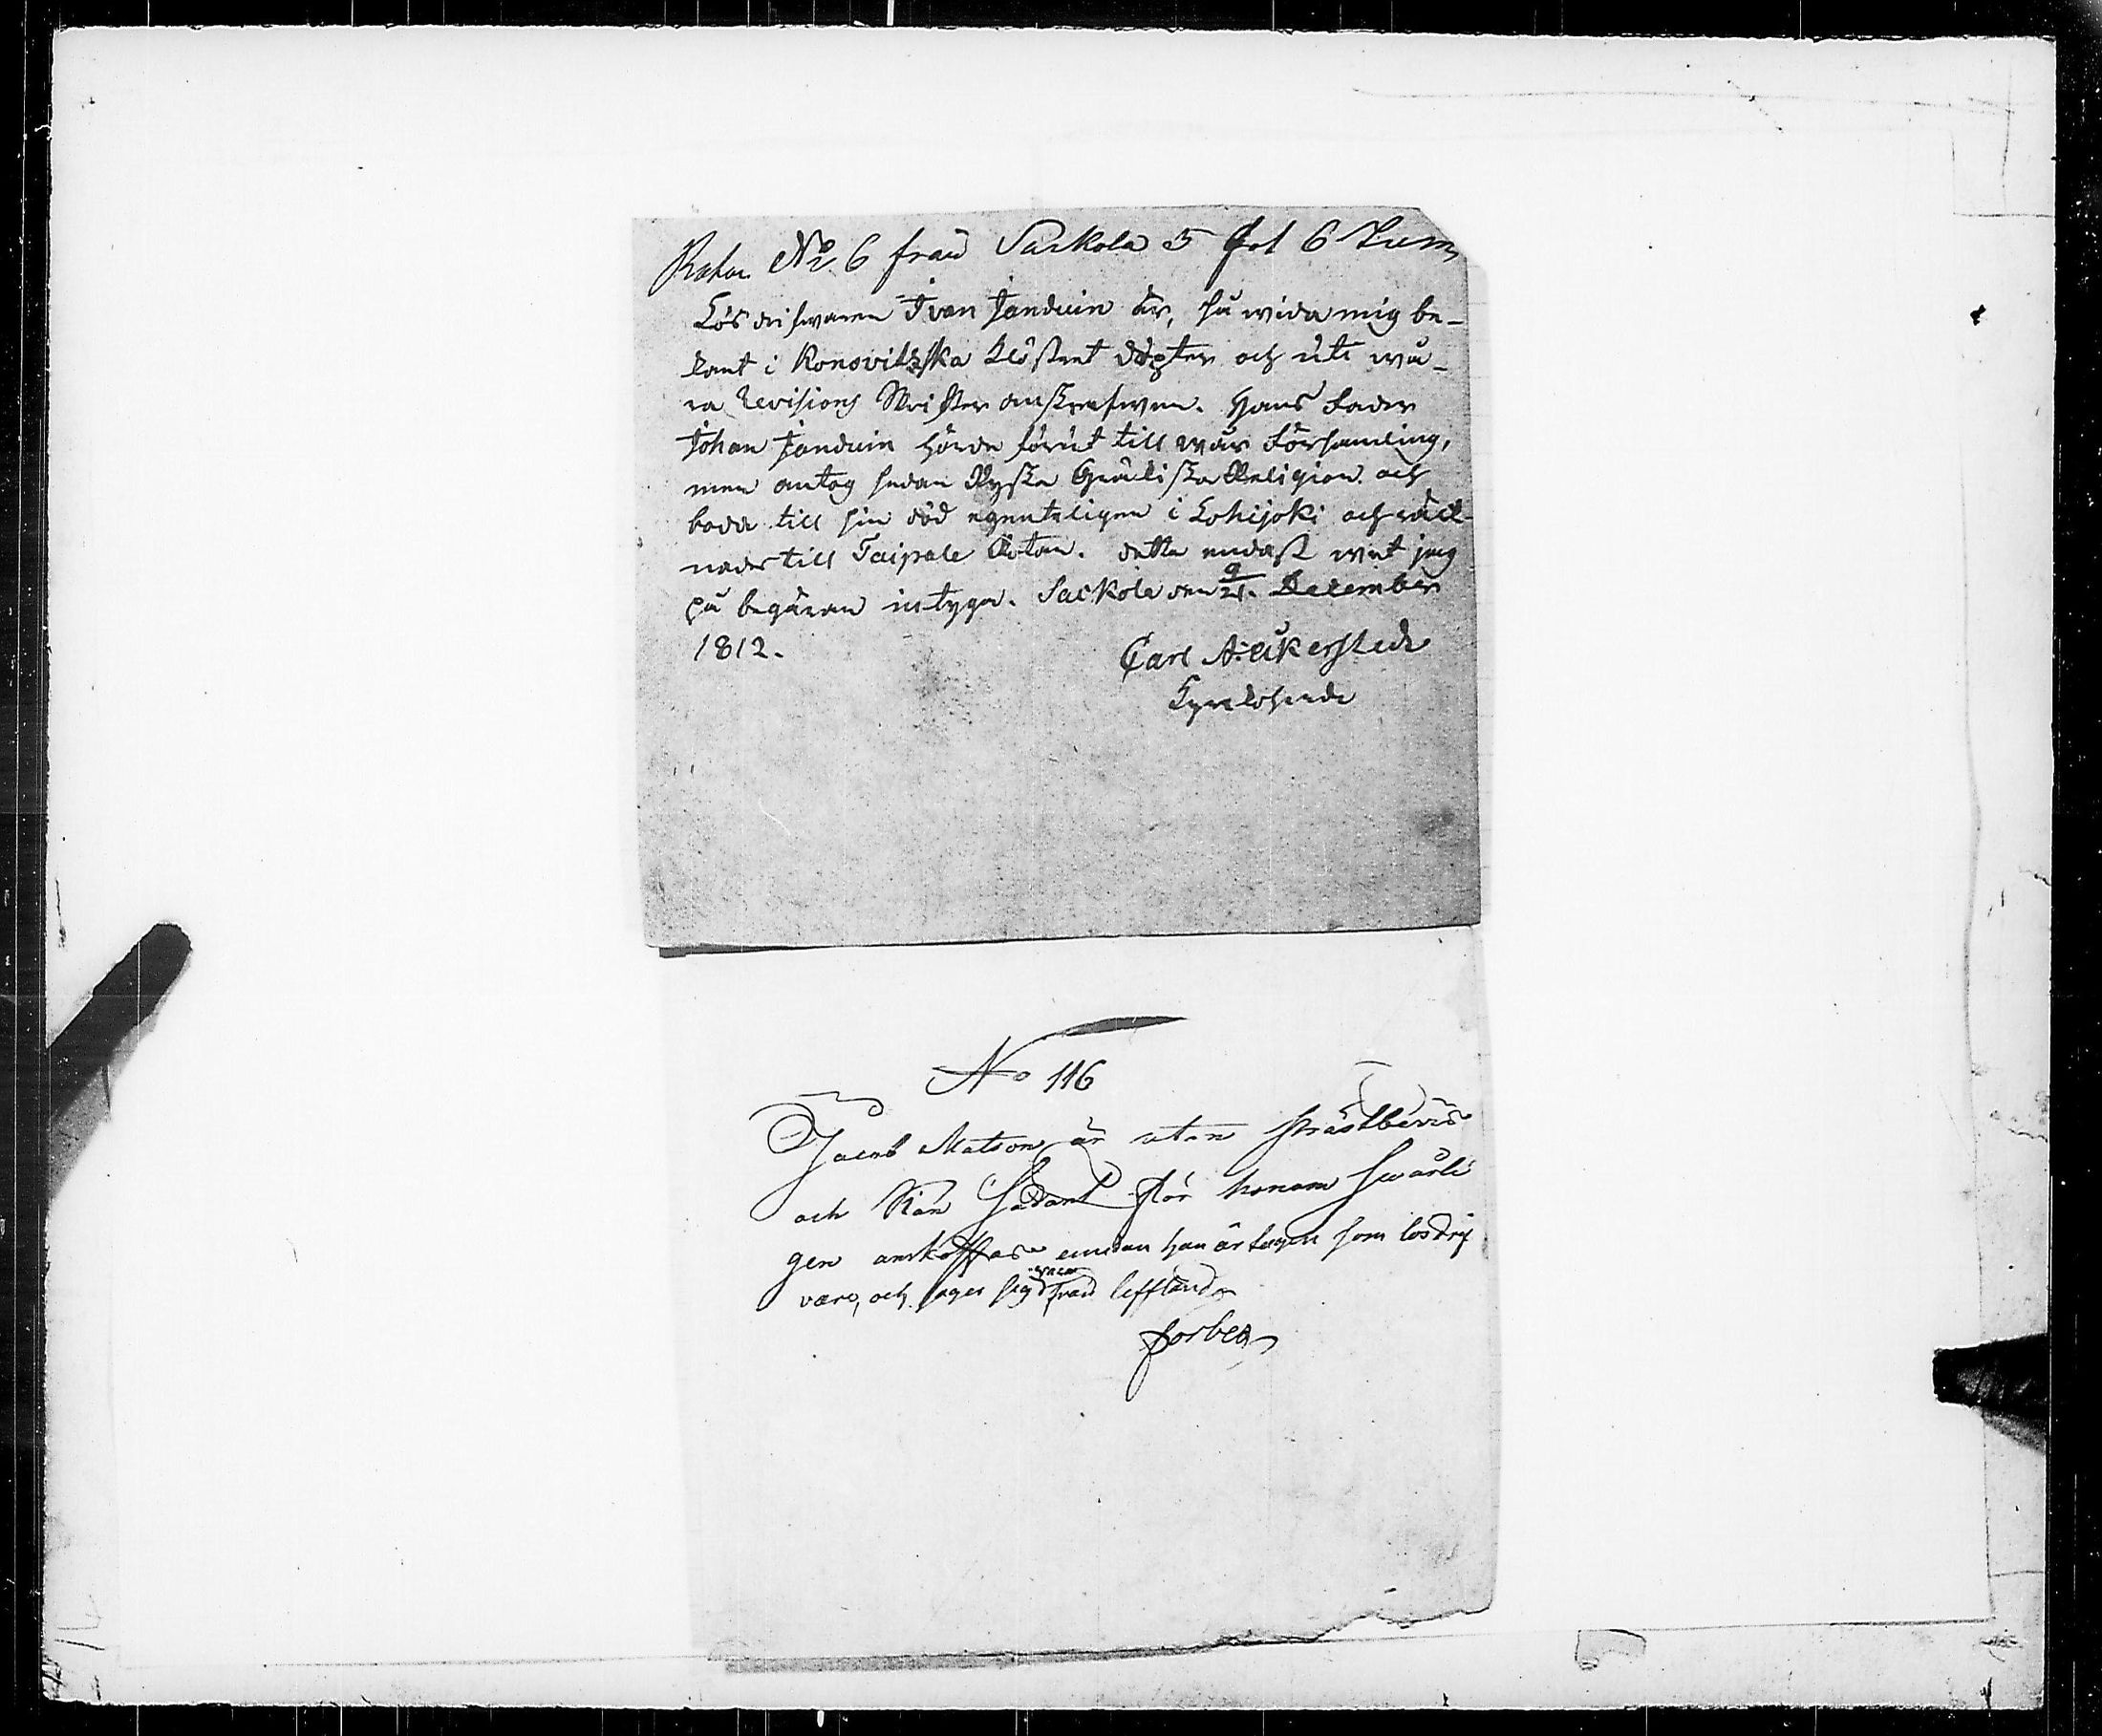 No 6 från Sackola 5 fot 6 tum
Lösdrifwaren Ivan Janduin är, så wida mig be-
kant i Konovitzska Klöstret döpter och uti wå-
ra Revisions Skrifter anskrefwen. Hans Fader
Johan Janduin hörde förut till wår Församling,
men antog sedan Ryska Grækiska Religion och
bodde till sin död egenteligen i Lohijoki och räck-
nades till Taipale Rotan. Detta endast wet jag
på begäran intyga. Sackola den 9/21. December
1812.
Carl A: Åkerstedt
Kyrckoherde
No 116
Jacob Matson är utan prästbevis
och kan sådant för honom swårli
gen anskaffas emedan han är tagen som losdrif
vare, och säger sig vara från Liffland
Forbes